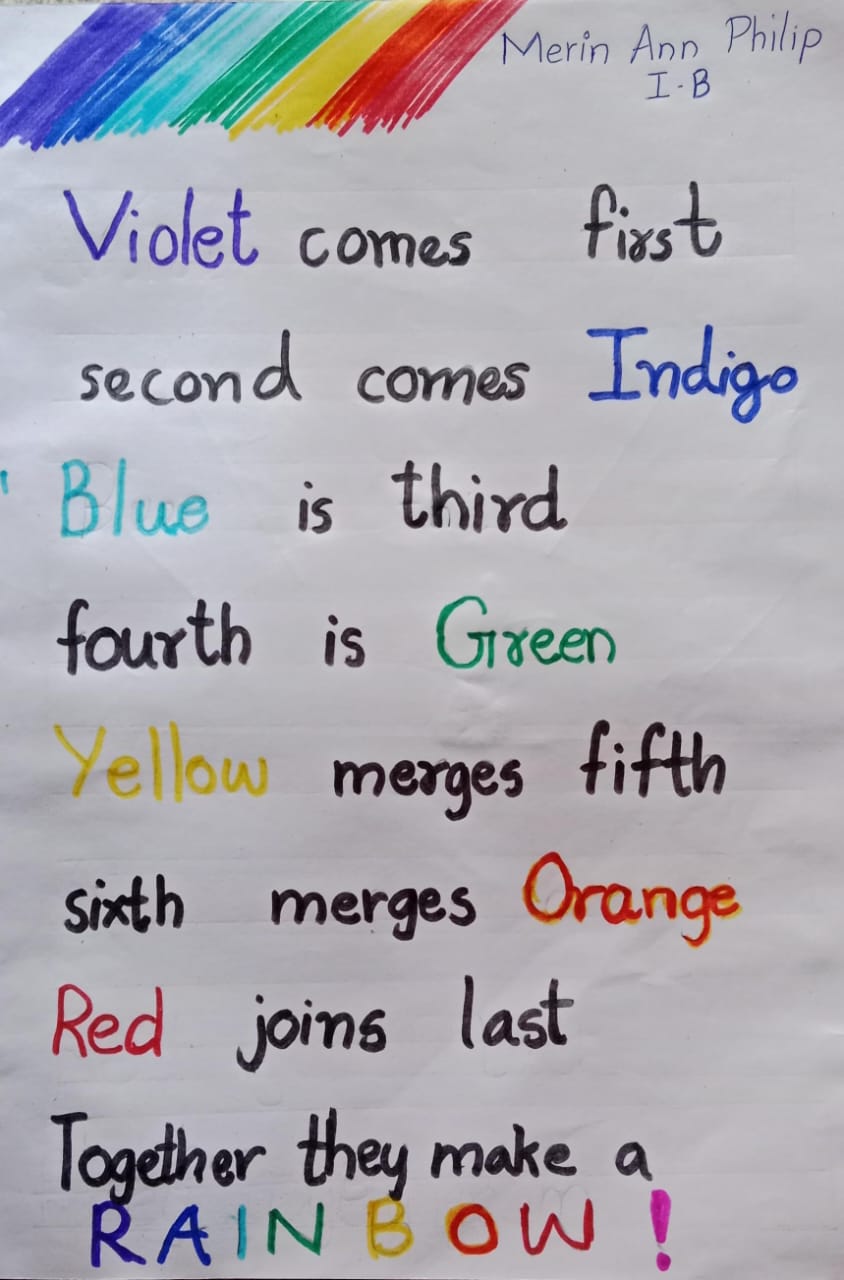 Merin Ann Philip
I-B
Violet comes first
second comes Indigo
Blue is third
fourth is Green
Yellow merges fifth
sixth merges Orange
Red joins last
Together they make a
RAINBOW!